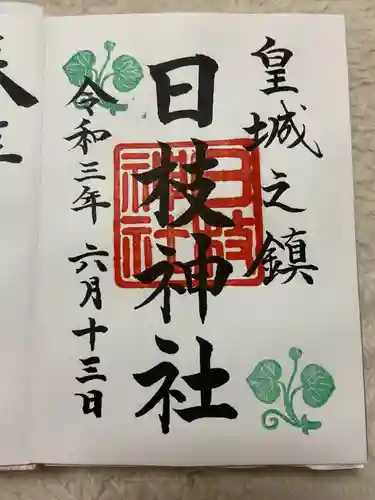 皇城之鎮
日枝神社
日枝
神社
令和三年 六月十三日